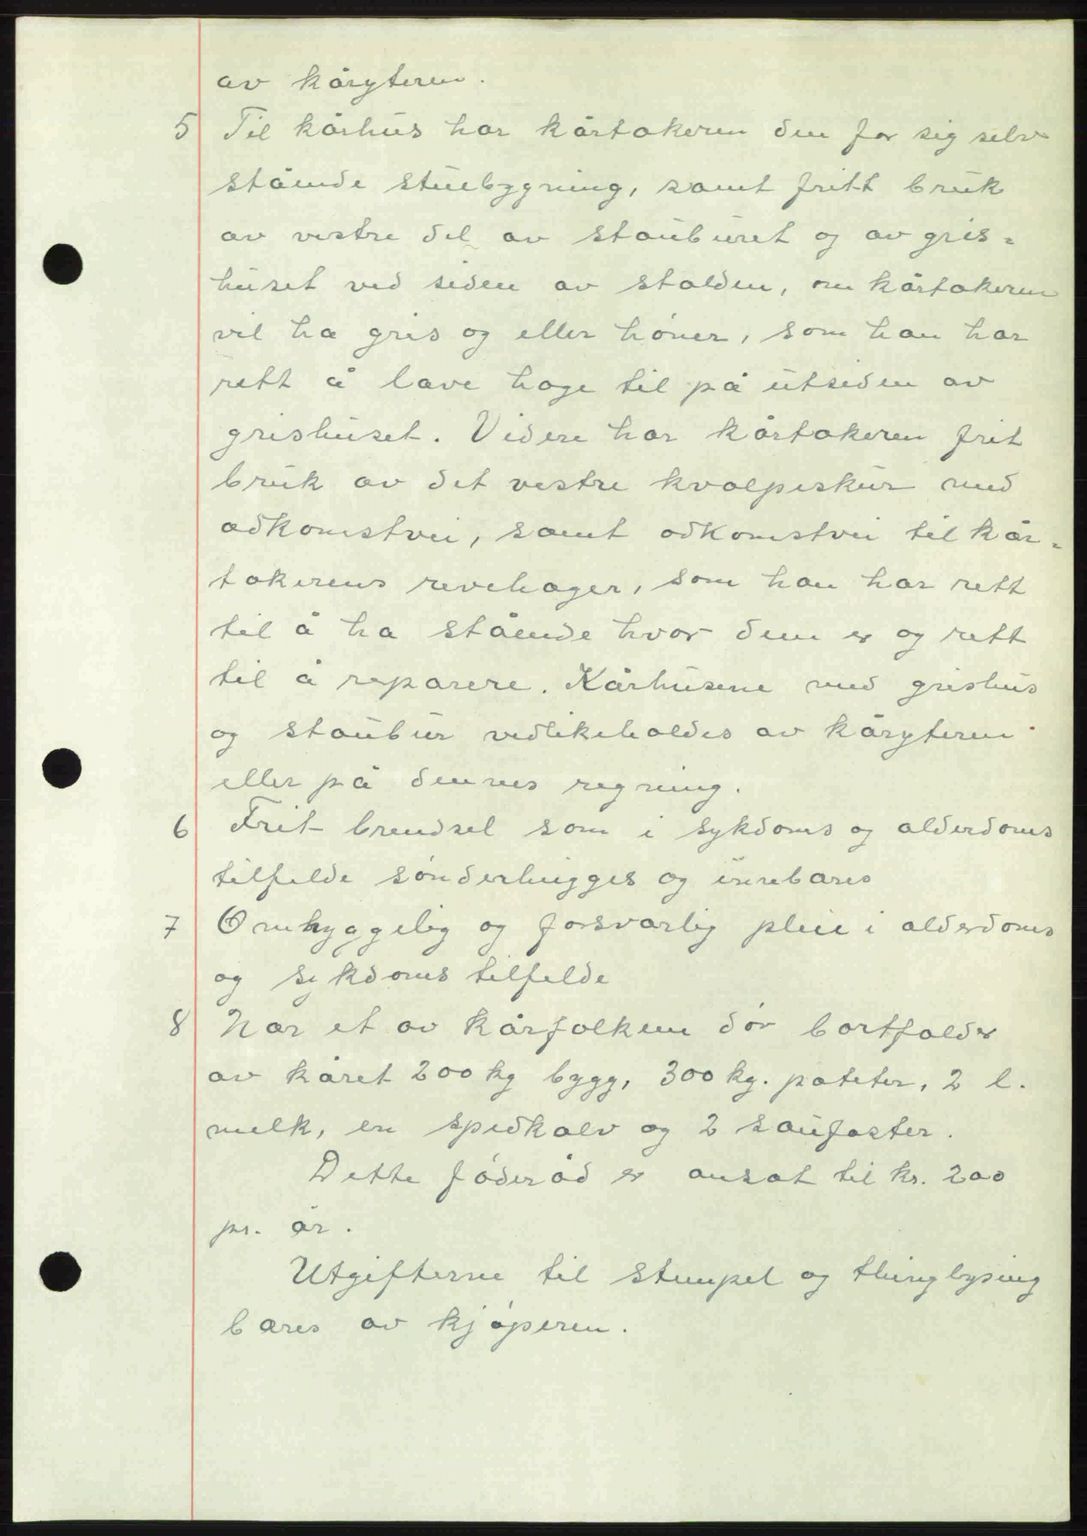 av kåryteren.
5 Til kårhus har kårtakeren den for sig selv
stående stuebygning, samt fritt bruk
av vestre del av stauburet og av gris=
huset ved siden av stalden, om kårtakeren
vil ha gris og eller høner, som han har
rett å lave hage til på utsiden av
grishuset. Videre har kårtakeren frit
bruk av det vestre kvalpeskur med
adkomstvei, samt adkomstvei til kår=
takerens revehager, som han har rett
til å ha stående hvor dem er og rett
til å reparere. Kårhusene med grishus
og staubur vedlikeholdes av kåryteren
eller på dennes regning.
6 Frit brendsel som i sykdoms og alderdoms
tilfelde sønderhugges og innebæres
7 Omhyggelig og forsvarlig pleie i alderdoms
og sykdoms tilfelde
8 Når et av kårfolkene dør bortfalder
av kåret 200 kg bygg, 300 kg. poteter, 2 l.
melk, en spedkalv og 2 saufoster.
Dette føderåd er ansat til kr. 200
pr. år.
Utgifterne til stempel og thinglysing
bæres av kjøperen.